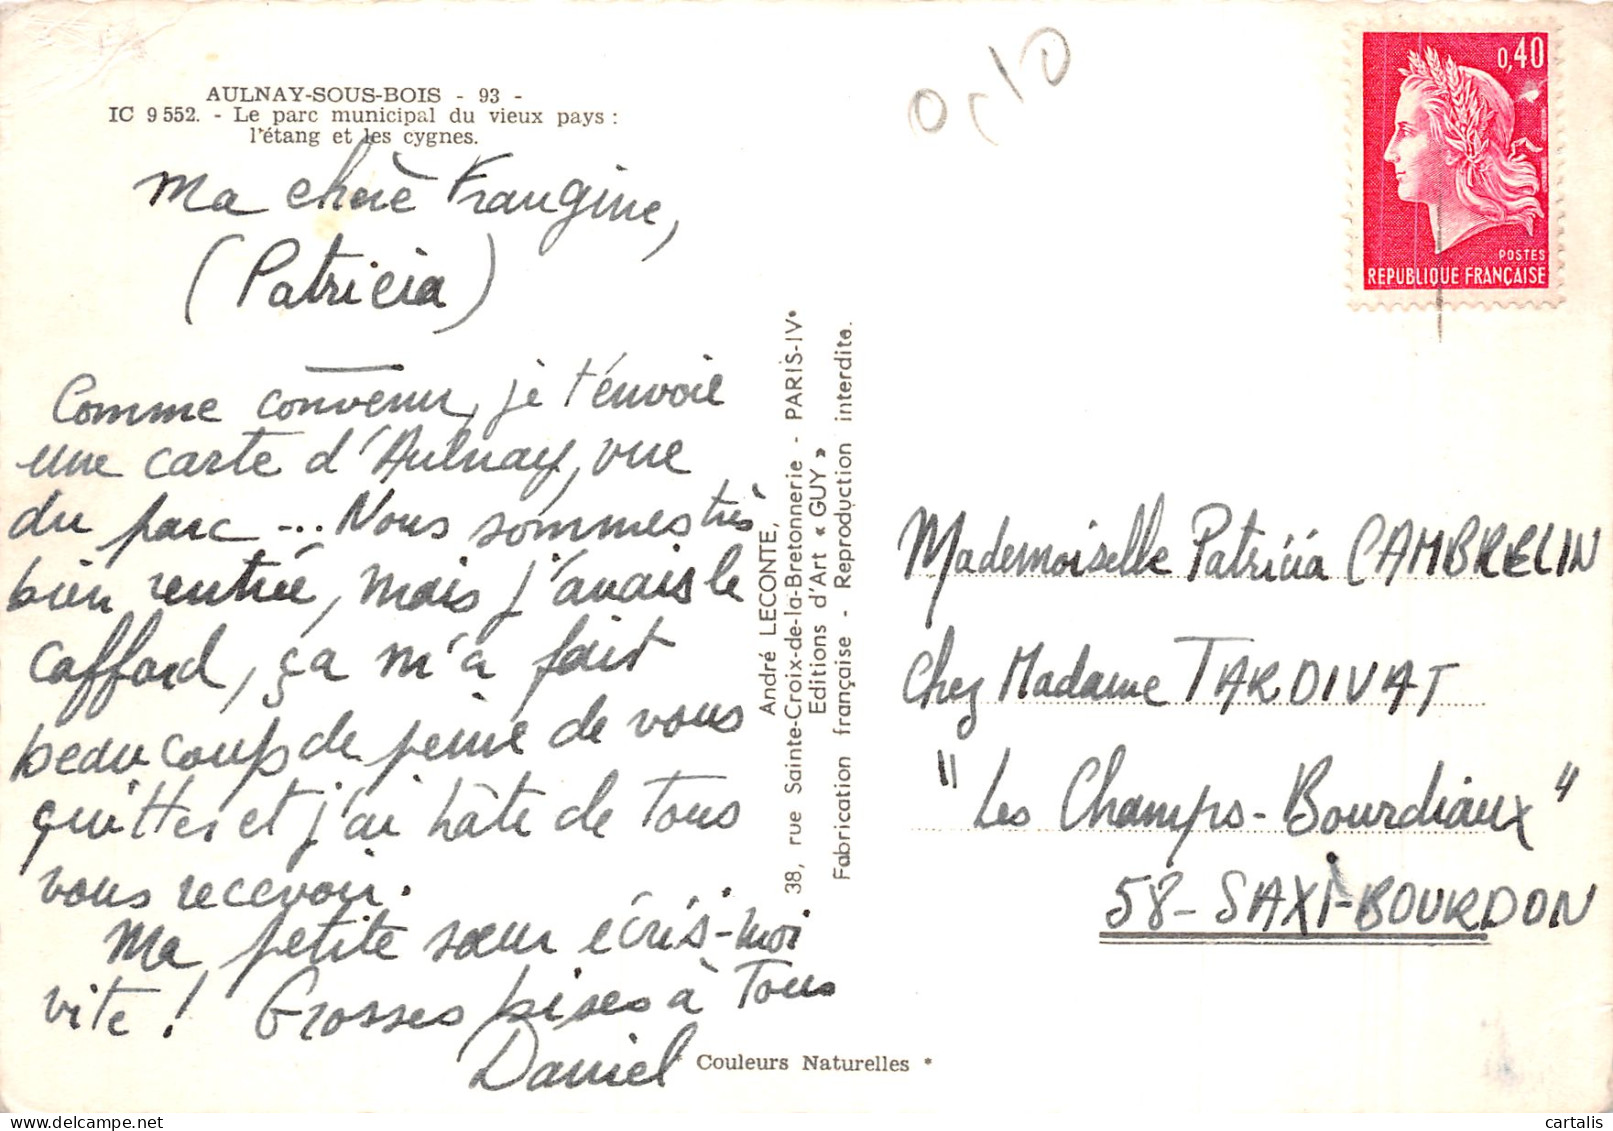 AULNAY-SOUS-BOIS - 93 -
IC 9 552. - Le parc municipal du vieux pays :
l'étang et les cygnes.
Ma chère Frangine,
(Patricia)
Comme convenu, je t'envoie
une carte d'Aulnay, vue
du parc ... Nous sommes très
bien rentré, mais j'avais le
caffard, ça m'a fait
beaucoup de peine de vous
quitter et j'ai hâte de tous
vous recevoir.
Ma petite sœur écris-moi
vite ! Grosses bises à Tous
Daniel
Couleurs Naturelles *
André LECONTE,
38, rue Sainte-Croix-de-la-Bretonnerie - PARIS-IVe
Editions d'Art « GUY »
Fabrication française - Reproduction interdite.
0,40
POSTES
REPUBLIQUE FRANÇAISE
Mademoiselle Patricia CAMBRELIN
Chez Madame TARDIVAT
"Les Champs-Bourdiaux"
58-SAXI-BOURDON
cartalis